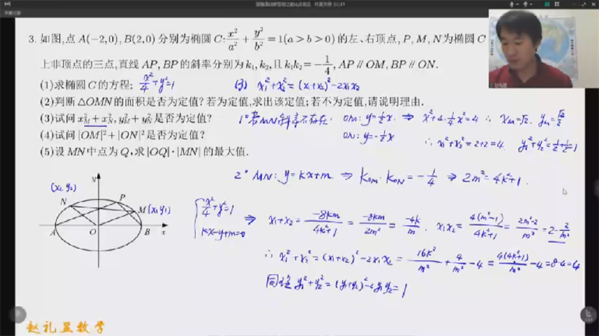 3. 如图,点 A(-2,0), B(2,0) 分别为椭圆 C: x²/a² + y²/b² = 1(a>b>0) 的左、右顶点, P, M, N 为椭圆 C
上非顶点的三点,直线 AP, BP 的斜率分别为 k₁, k₂,且 k₁k₂ = -1/4, AP∥OM, BP∥ON.
(1)求椭圆 C 的方程; x²/4 + y² = 1
(2)判断△OMN 的面积是否为定值?若为定值,求出该定值;若不为定值,请说明理由.
(3)试问 x²M + x²N, y²M + y²N 是否为定值?
(4)试问 |OM|² + |ON|² 是否为定值?
(5)设 MN 中点为 Q,求 |OQ|·|MN| 的最大值.
(3) x₁² + x₂² = (x₁+x₂)² - 2x₁x₂
1° 若MN斜率不存在.
OM: y = ½x.
ON: y = -½x
⇒ x² + 4·¼x² = 4 ∴ xM = √2.
∴ x₁² + x₂² = 2+2 = 4. y₁² + y₂² = ½ + ½ = 1
2° MN: y = kx + m ⇒ kOM·kON = -1/4 ⇒ 2m² = 4k² + 1.
{ x²/4 + y² = 1
kx - y + m = 0
⇒ x₁ + x₂ = -8km/(4k²+1) = -8km/2m² = -4k/m x₁x₂ = 4(m²-1)/(4k²+1) = (2m²-2)/m² = 2 - 2/m²
∴ x₁² + x₂² = (x₁+x₂)² - 2x₁x₂ = 16k²/m² + 4/m² - 4 = 4(4k²+1)/m² - 4 = 8 - 4 = 4
同理 y₁² + y₂² = (y₁+y₂)² - 2y₁y₂ = 1
y
(x₂,y₂)
N
P
M
(x₁,y₁)
A
O
B
x
赵礼显数学